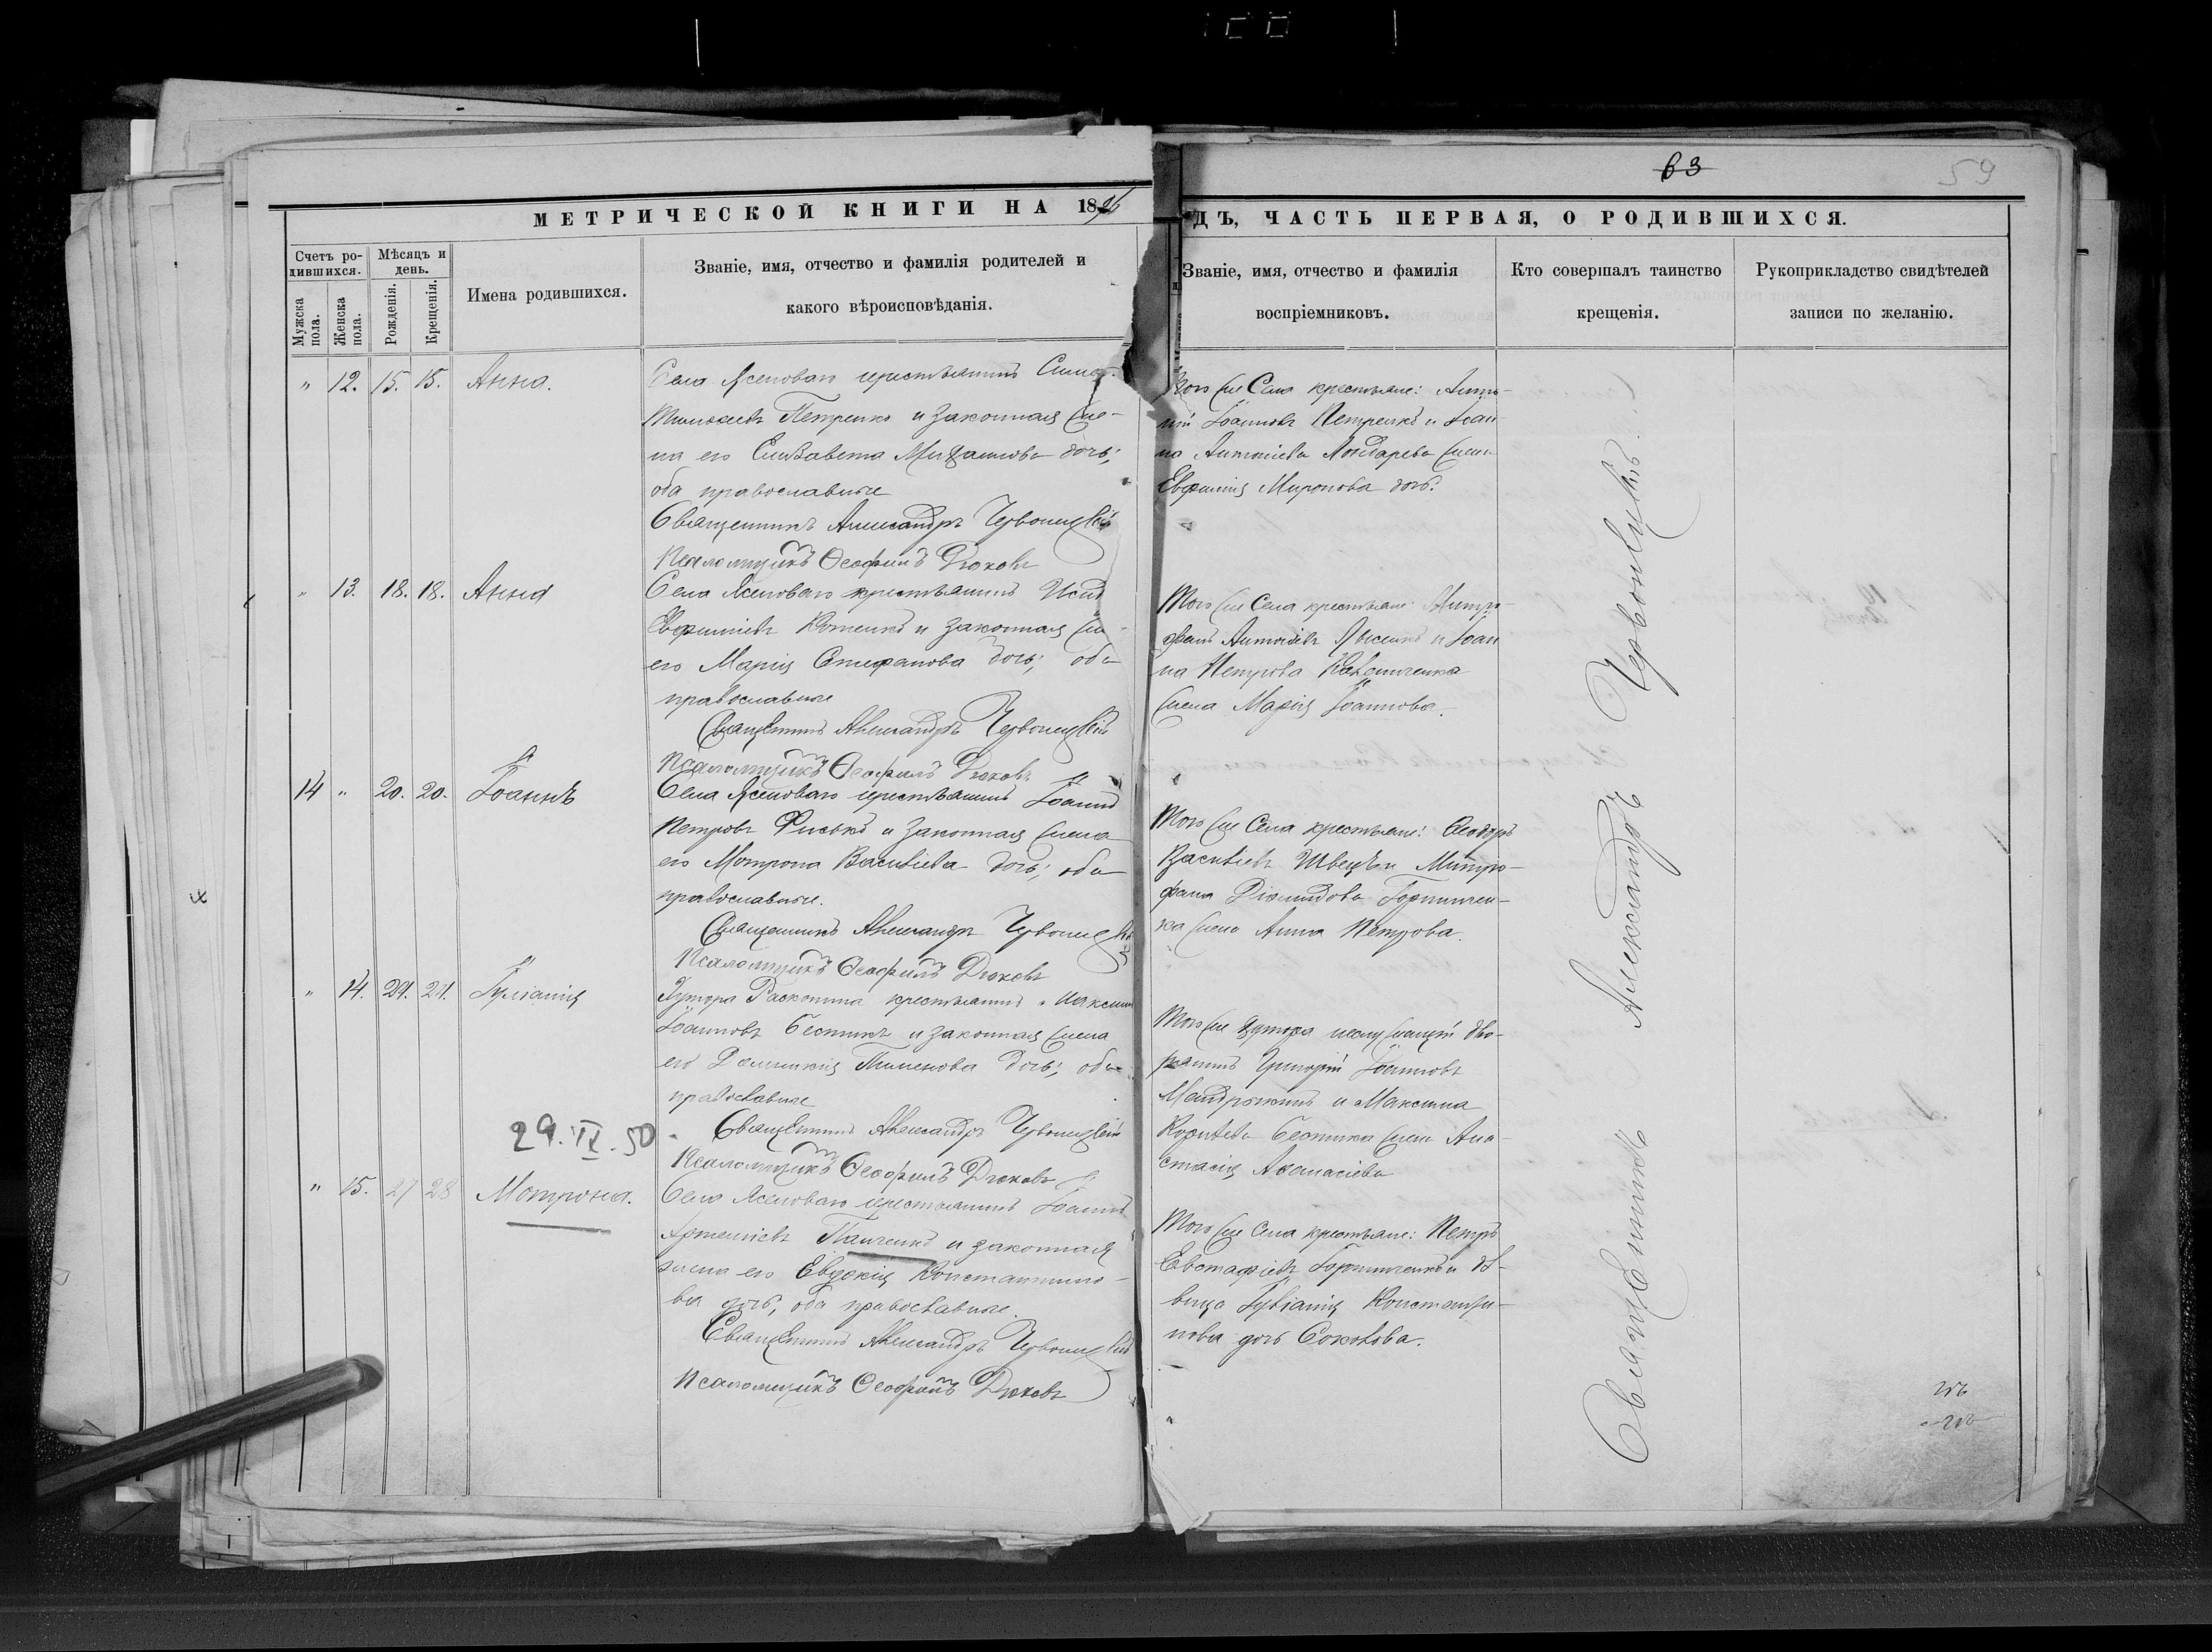 63 59
МЕТРИЧЕСКОЙ КНИГИ НА 1896
ДЪ, ЧАСТЬ ПЕРВАЯ, О РОДИВШИХСЯ.
Счетъ родившихся.
Мужска пола.
Женска пола.
Мѣсяцъ и день.
Рожденія.
Крещенія.
Имена родившихся.
Званіе, имя, отчество и фамилія родителей и
какого вѣроисповѣданія.
Званіе, имя, отчество и фамилія
воспріемниковъ.
Кто совершалъ таинство
крещенія.
Рукоприкладство свидѣтелей
записи по желанію.
" 12. 15. 15. Анна.
Села Ясеноваго крестьянинъ
Петренко и законная же-
на его Елизавета Михаилова дочь;
оба православные
Священникъ Александръ Червонецкій
Псаломщикъ Ѳеофилъ Дюковъ
Того же Села крестьяне:
Іоанновъ Петренко и Іоан-
на Антоніева жена
Евфимія Миронова дочь.
" 13. 18. 18. Анна
Села Ясеноваго крестьянинъ
Евфиміевъ и законная же-
его Марія Стефанова дочь; оба
православные
Священникъ Александръ Червонецкій
Псаломщикъ Ѳеофилъ Дюковъ
Того же Села крестьяне: Митро-
фанъ Антоніевъ Лысенко и Іоан-
на Петрова
жена Марія Іоаннова.
14 " 20. 20. Іоаннъ
Села Ясеноваго крестьянинъ Іоаннъ
Петровъ и законная жена
его Мотрона Василіева дочь; оба
православные.
Священникъ Александръ Червонецкій
Псаломщикъ Ѳеофилъ Дюковъ
Того же Села крестьяне: Ѳеодоръ
Василіевъ Швецъ и Митро-
фана Діомидова Горпинчен-
ка жена Анна Петрова.
" 14. 21. 21. Іуліанія
Хутора Раскопина крестьянинъ Максимъ
Іоанновъ и законная жена
его Домникія Пименова дочь; оба
православные
Священникъ Александръ Червонецкій
Псаломщикъ Ѳеофилъ Дюковъ
Того же Хутора дво-
рянинъ Григорій Іоанновъ
Мандрыкинъ и Максима
жена Ана-
стасія Аѳанасіева
29.IX.50
" 15. 27 28 Мотрона.
Села Ясеноваго крестьянинъ Іоаннъ
Артеміевъ Панченко и законная
жена его Евдокія Константино-
ва дочь, оба православные.
Священникъ Александръ Червонецкій
Псаломщикъ Ѳеофилъ Дюковъ
Того же Села крестьяне: Петръ
Евстафіевъ Горпинченко и дѣ-
вица Іуліанія Константи-
нова дочь Соколова.
Священникъ Александръ Червонецкій.